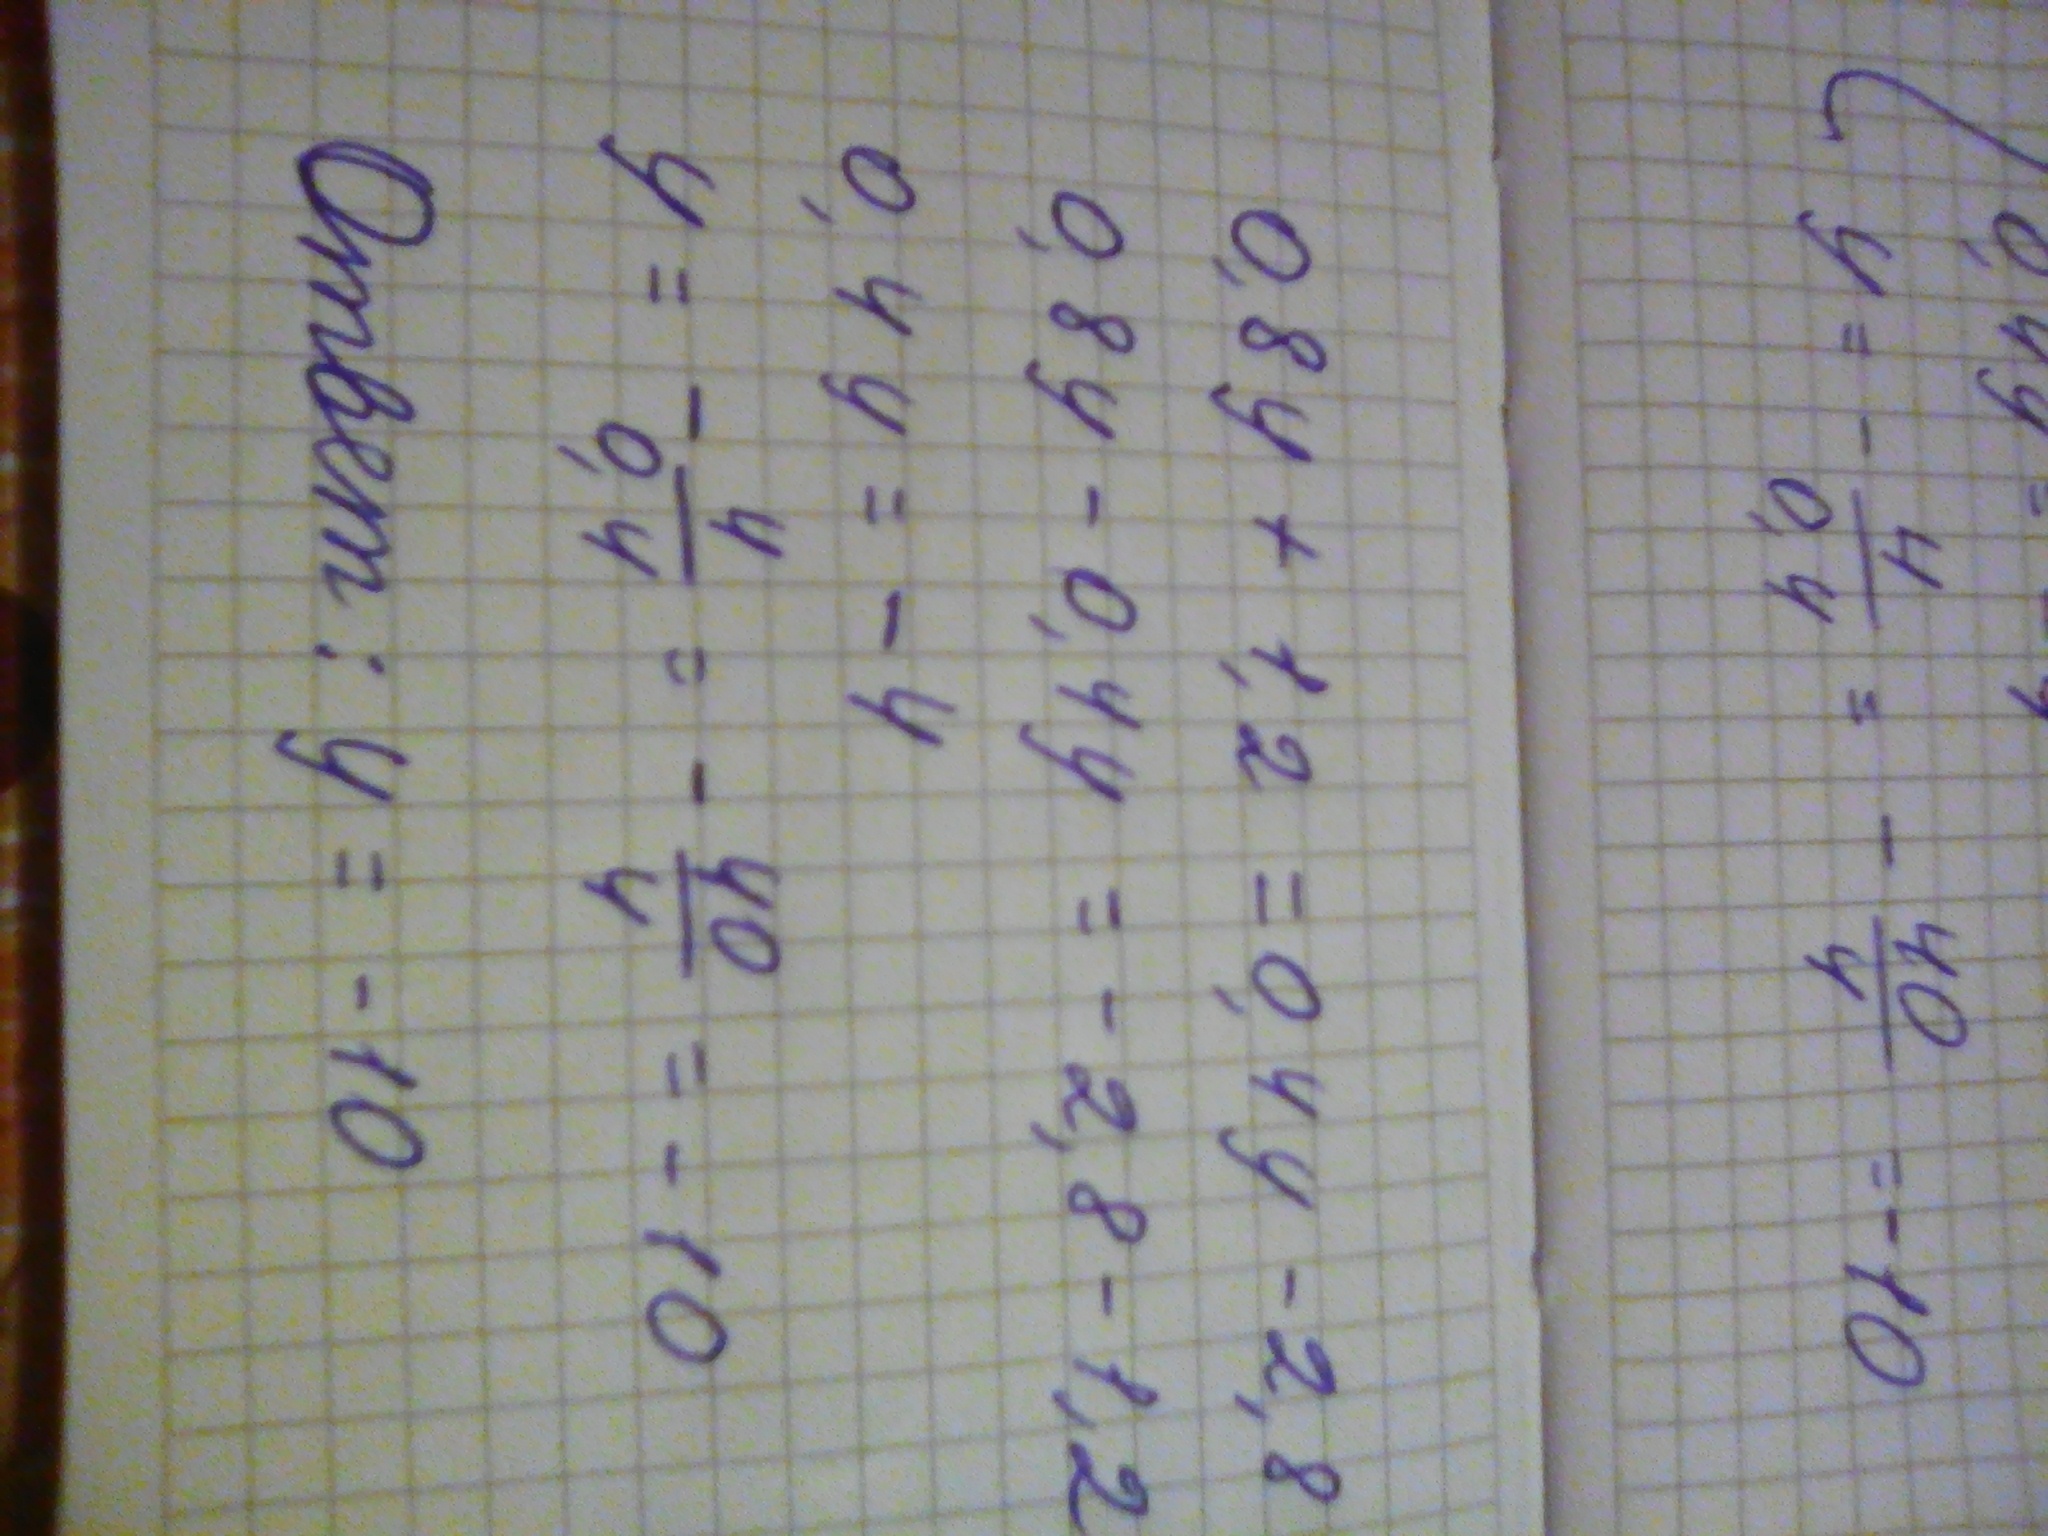 0,4y =
y = - 4/0,4 = - 40/4 = - 10
0,8y + 1,2 = 0,4y - 2,8
0,8y - 0,4y = - 2,8 - 1,2
0,4y = - 4
y = - 4/0,4 = - 40/4 = - 10
Ответ: y = - 10